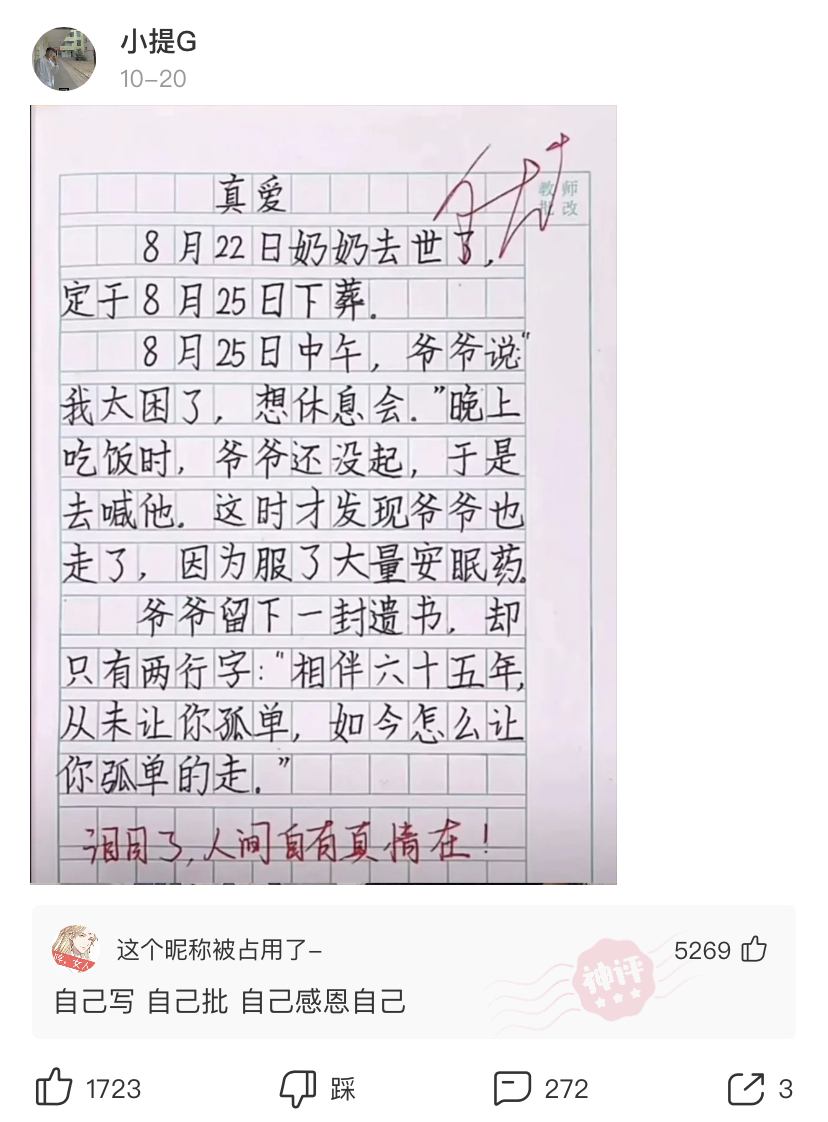 小提G
10-20
教师
批改
真爱
8月22日奶奶去世了,
定于8月25日下葬.
8月25日中午, 爷爷说:"
我太困了, 想休息会."晚上
吃饭时, 爷爷还没起, 于是
去喊他. 这时才发现爷爷也
走了, 因为服了大量安眠药.
爷爷留下一封遗书, 却
只有两行字:"相伴六十五年,
从未让你孤单, 如今怎么让
你孤单的走."
泪目了,人间自有真情在!
这个昵称被占用了-
神评
5269
自己写 自己批 自己感恩自己
1723
踩
272
3